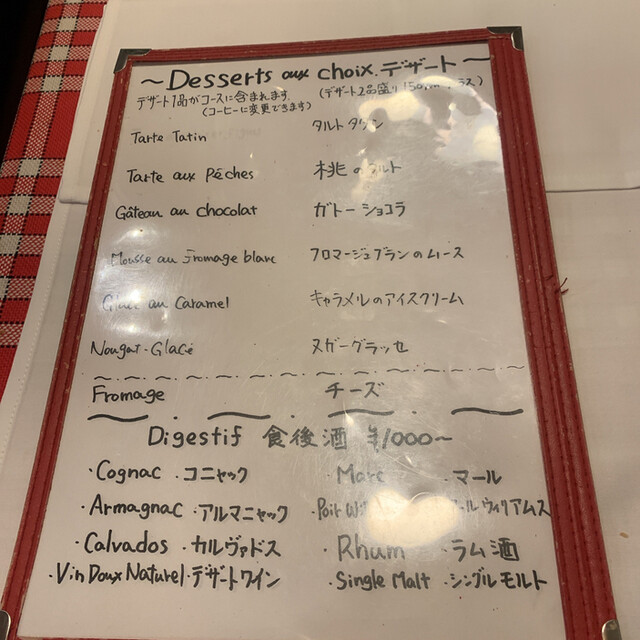 〜Desserts aux choix.デザート〜
デザート1品がコースに含まれます。 (デザート2品盛り
(コーヒーに変更できます)
Tarte Tatin タルトタタン
Tarte aux Pêches 桃のタルト
Gâteau au chocolat ガトーショコラ
Mousse au Fromage blanc フロマージュブランのムース
Glace au Caramel キャラメルのアイスクリーム
Nougat-Glacé ヌガーグラッセ
Fromage チーズ
Digestif 食後酒 ¥1000〜
・Cognac ・コニャック ・Marc ・マール
・Armagnac ・アルマニャック ・Poir ウィリアムス
・Calvados ・カルヴァドス ・Rhum ・ラム酒
・Vin Doux Naturel ・デザートワイン ・Single Malt ・シングルモルト